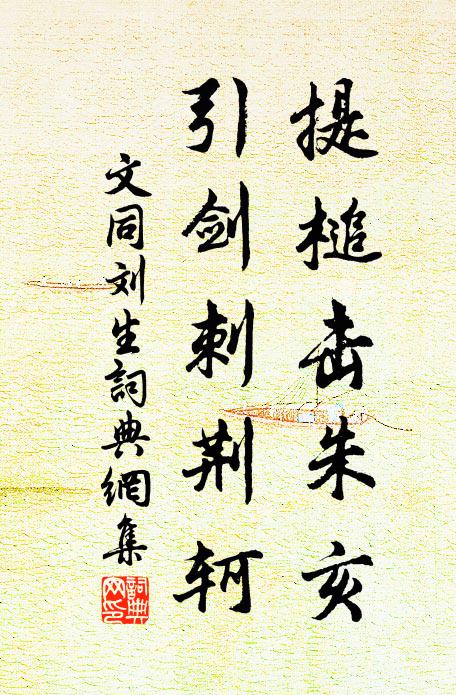 提槌击朱亥
引剑刺荆轲
文同刘生詞典網集
詞典網印